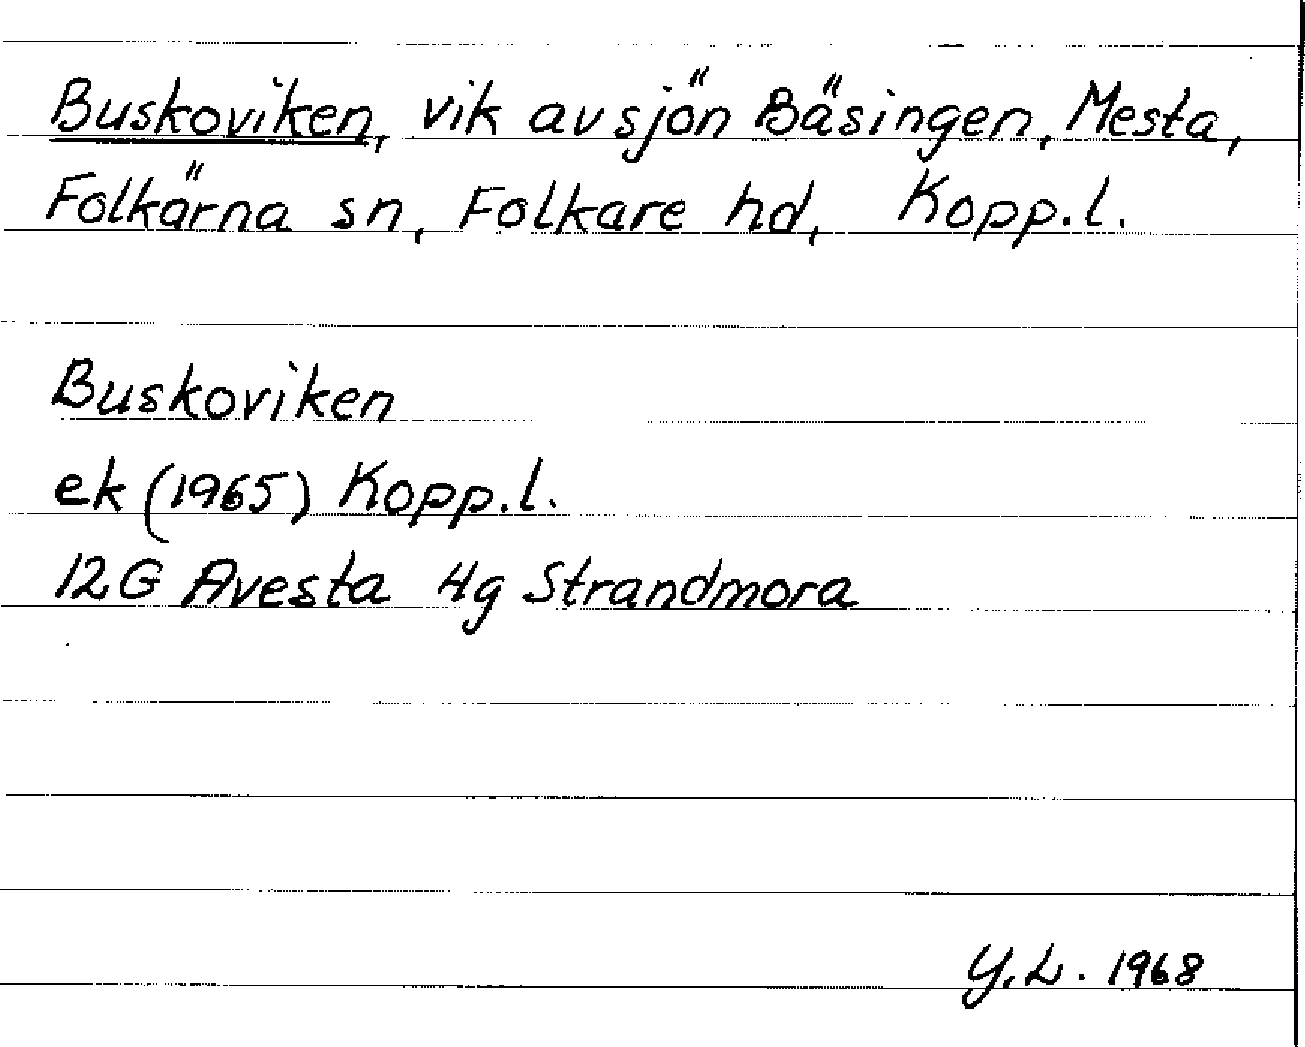 Buskoviken, vik av sjön Bäsingen, Mesta,
Folkärna sn, Folkare hd, Kopp.l.
Buskoviken
ek (1965) Kopp.l.
12G Avesta 4g Strandmora
Y.L. 1968